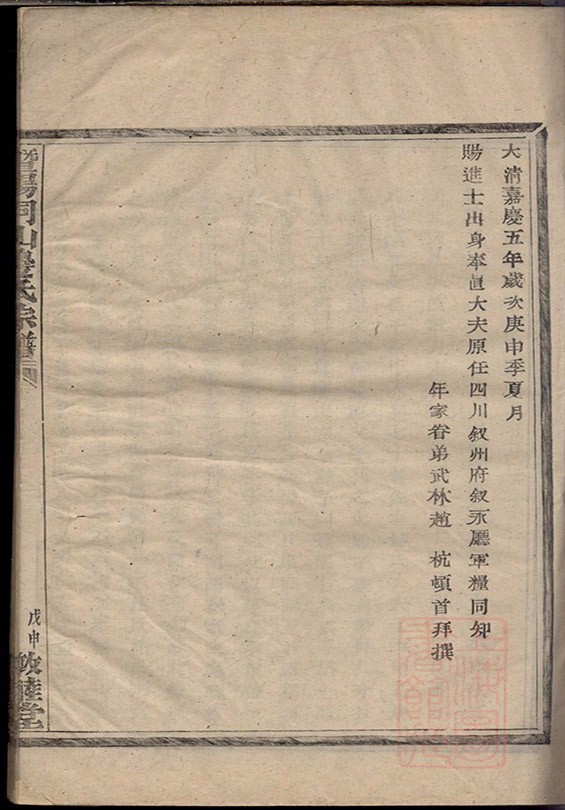 大清嘉慶五年歲次庚申季夏月
賜進士出身奉直大夫原任四川叙州府叙永廳軍糧同知
年家眷弟武林趙 杭頓首拜撰
暨陽同山壽氏宗譜
戊申
敦睦堂